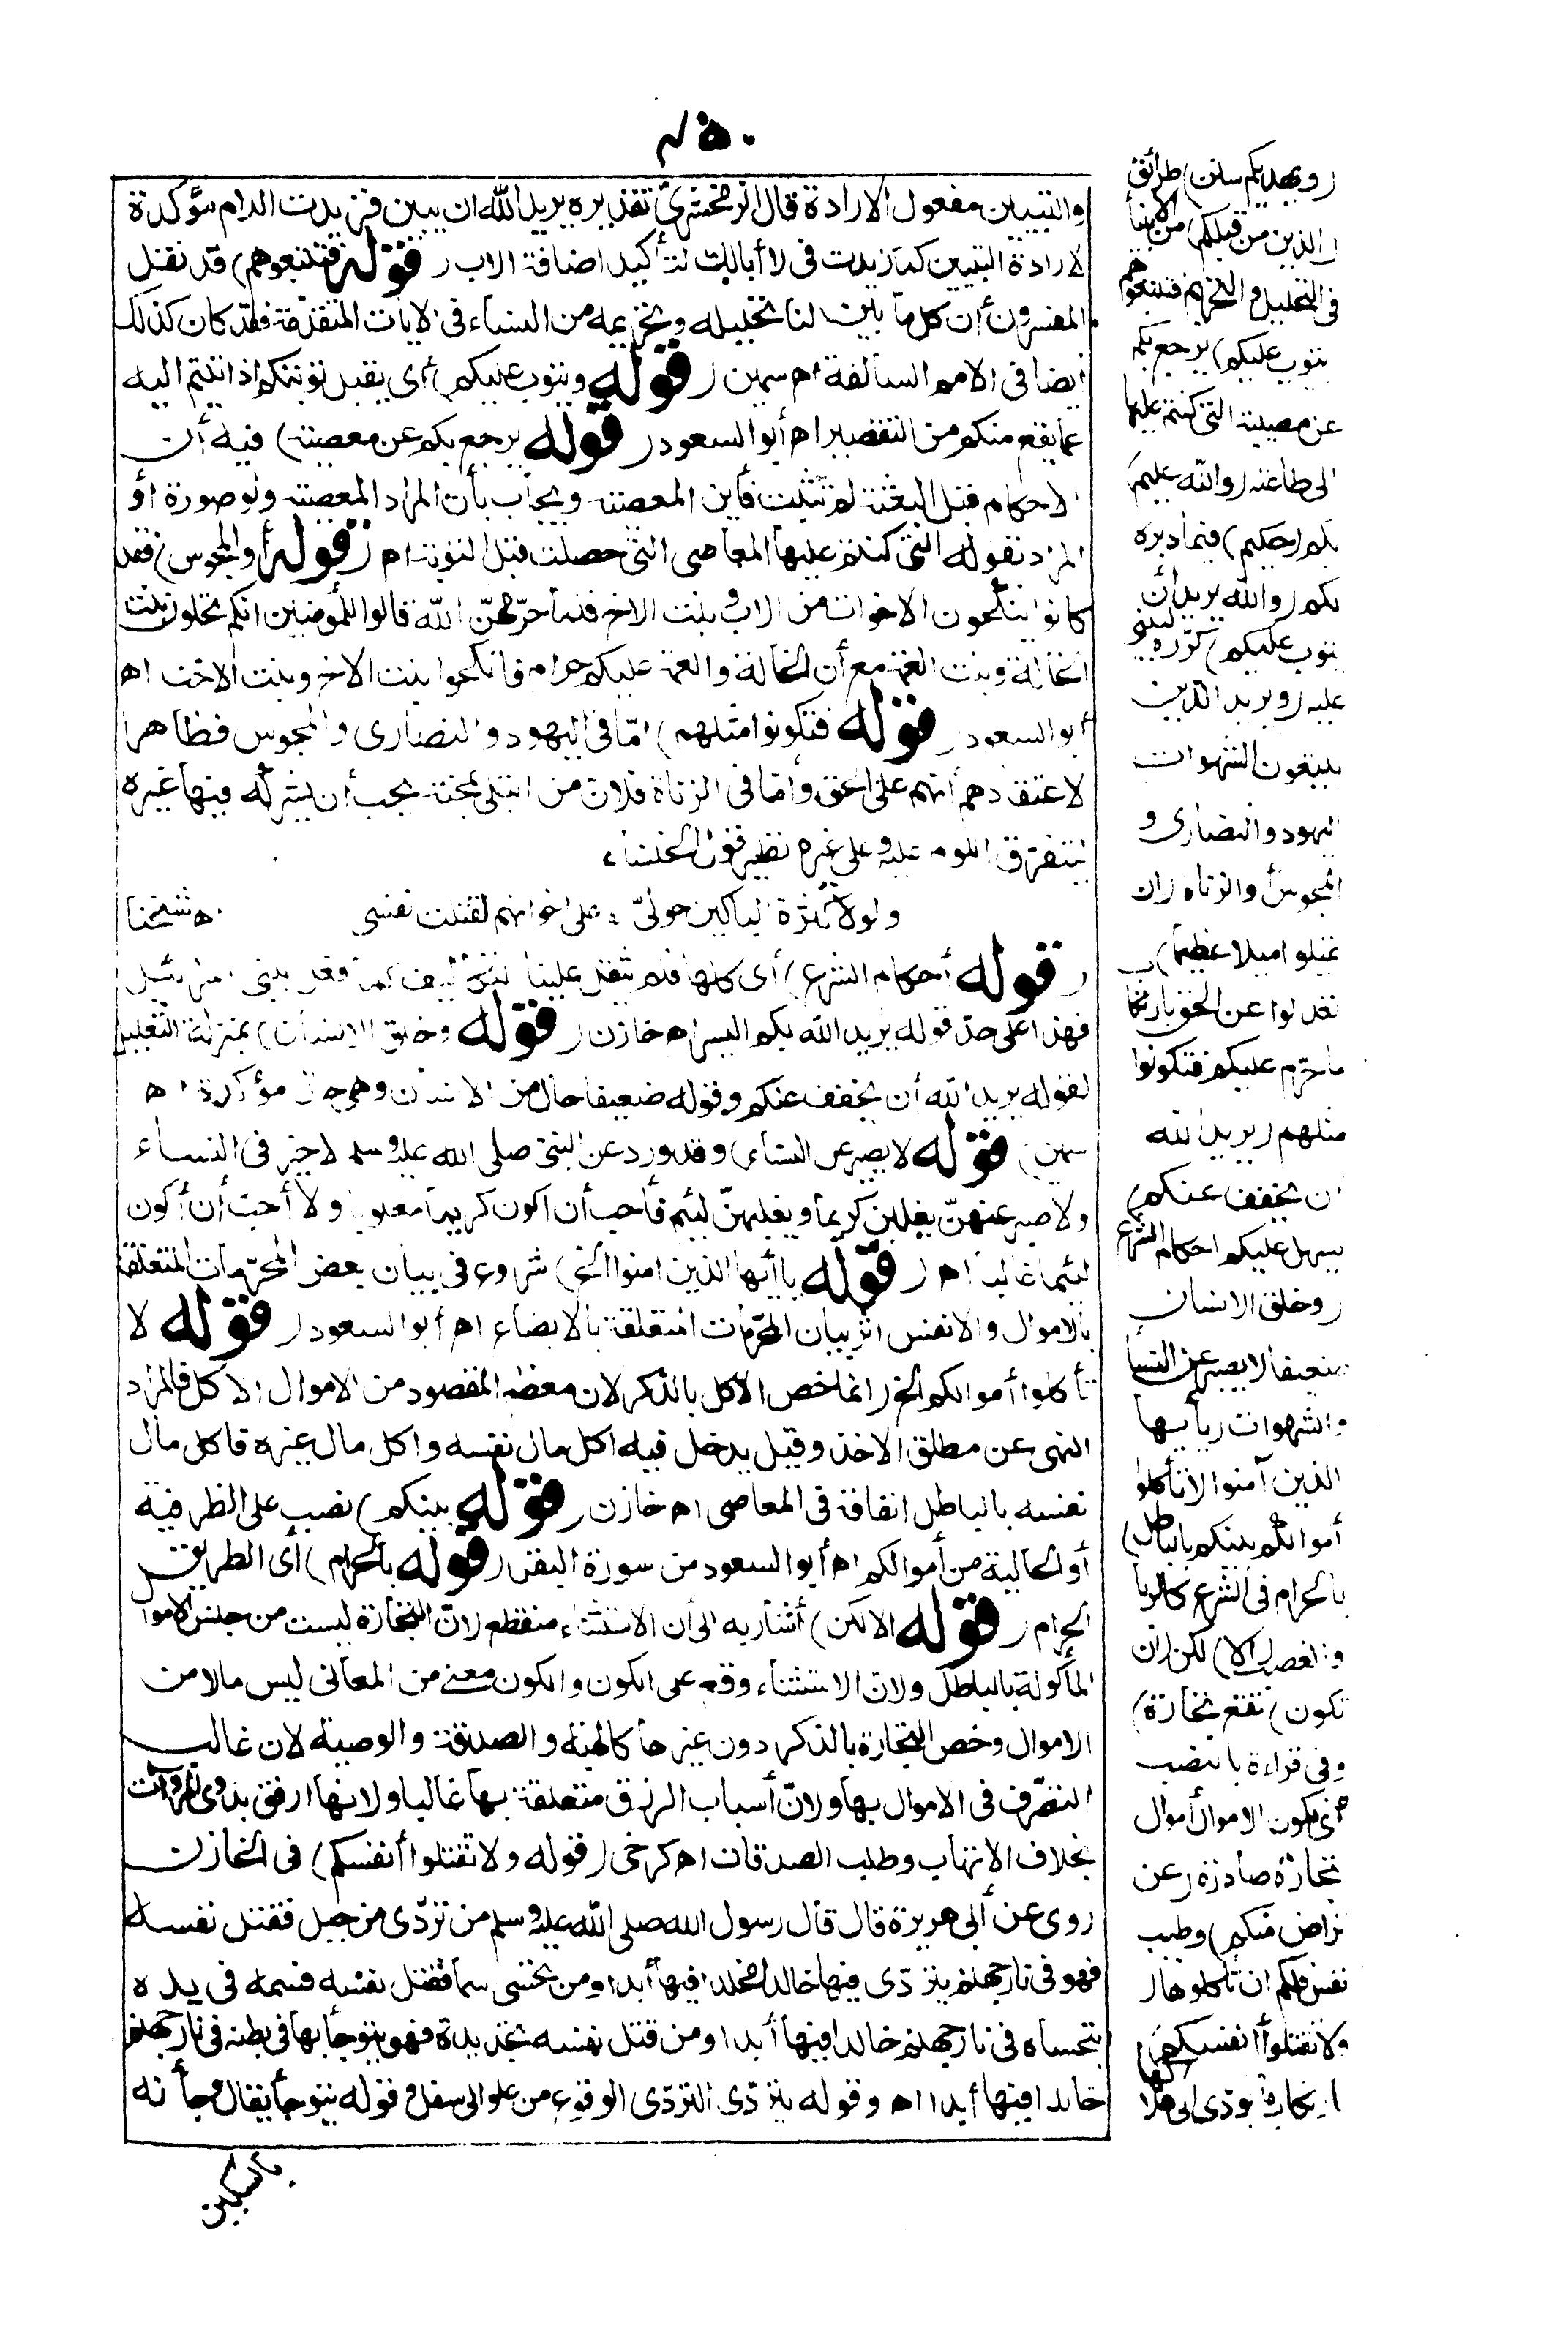 والتبيين مفعول الارادة قال الزمخشرىّ تقديره يريد الله ان يبين فزيدت اللام مؤكدة
لارادة التبيين كما زيدت فى لا أبالك لتأكيد اضافة الاب ( قوله فتتبعوهم ) قد نقل
المفسرون أن كل ما بين لنا تحليله وتحريمه من النساء فى الايات المتقدّمة فقد كان كذلك
ايضا فى الامم السالفة اه سمين ( قوله ويتوب عليكم ) أى يقبل توبتكم اذا تبتم اليه
عما يقع منكم من التقصير اه أبوالسعود ( قوله يرجع بكم عن معصيته ) فيه أن
الاحكام قبل البعثة لم تثبت فأين المعصية ويجاب بأن المراد المعصية ولو صورة أو
المراد بقوله التى كنتم عليها المعاصى التى حصلت قبل التوبة اه ( قوله أو المجوس ) فقد
كانوا ينكحون الاخوات من الاب وبنت الاخ فلما حرّمهنّ الله قالوا للمؤمنين انكم تحلون بنت
الخالة وبنت العمة مع أن الخالة والعمة عليكم حرام فانكحوا بنت الاخ وبنت الاخت اه
أبوالسعود ( قوله فتكونوا مثلهم ) امّا فى اليهود والنصارى والمجوس فظاهر
لاعتقادهم انهم على الحق وأما فى الزناة فلان من ابتلى بمحنة يحب أن يشركه فيها غيره
ليتفرق اللوم عليه وعلى غيره نظير قول الخنساء
ولولا كثرة الباكين حولىّ : على اخوانهم لقتلت نفسى اه شيخنا
( قوله أحكام الشرع ) أى كلها فلم يثقل علينا التكاليف كما ثقل على بنى اسرائيل
فهذا على حد قوله يريد الله بكم اليسر اه خازن ( قوله وخلق الانسان ) بمنزلة التعليل
لقوله يريد الله أن يخفف عنكم وقوله ضعيفا حال من الانسان وهى حال مؤكدة اه
سمين ( قوله لا يصبر عن النساء ) وقد ورد عن النبى صلى الله عليه وسلم لا خير فى النساء
ولا صبر عنهنّ يغلبن كريما ويغلبهنّ لئيم فأحب أن اكون كريما مغلوبا ولا أحبّ أن أكون
لئيما غالبا اه ( قوله ياأيها الذين امنوا الخ ) شروع فى بيان بعض المحرّمات المتعلقة
بالاموال والانفس اثر بيان المحرّمات المتعلقة بالابضاع اه أبوالسعود ( قوله لا
تأكلوا أموالكم الخ ) انما خص الاكل بالذكر لان معظم المقصود من الاموال الاكل فالمراد
النهى عن مطلق الاخذ وقيل يدخل فيه اكل مال نفسه واكل مال غيره فاكل مال
نفسه بالباطل انفاقه فى المعاصى اه خازن ( قوله بينكم ) نصب على الظرفية
أو الحالية من أموالكم اه أبوالسعود من سورة البقرة ( قوله بالحرام ) أى الطريق
الحرام ( قوله الا لكن ) أشار به الى أن الاستثناء منقطع لانّ التجارة ليست من جنس الاموال
المأكولة بالباطل ولان الاستثناء وقع على الكون والكون معنى من المعانى ليس مالا من
الاموال وخص التجارة بالذكر دون غيرها كالهبة والصدقة والوصية لان غالب
التصرّف فى الاموال بها ولانّ أسباب الرزق متعلقة بها غالبا ولانها ارفق بذوى المروآت
بخلاف الاتهاب وطلب الصدقات اه كرخى ( قوله ولا تقتلوا أنفسكم ) فى الخازن
روى عن أبى هريرة قال قال رسول الله صلى الله عليه وسلم من تردّى من جبل فقتل نفسه
فهو فى نار جهنم يتردّى فيها خالدا مخلدا فيها أبدا ومن تحسى سما فقتل نفسه فسمه فى يده
يتحساه فى نار جهنم خالدا فيها أبدا ومن قتل نفسه بحديدة فهو يتوجأ بها فى بطنه فى نار جهنم
خالدا فيها أبدا اه وقوله يتردّى التردّى الوقوع من علو الى سفل وقوله يتوجأ يقال وجأته
بالسكين
( ويهديكم سنن ) طرائق
( الذين من قبلكم ) من الانبياء
فى التحليل والتحريم فتتبعوهم
( ويتوب عليكم ) يرجع بكم
عن معصيته التى كنتم عليها
الى طاعته ( والله عليم )
بكم ( حكيم ) فيما دبره
لكم ( والله يريد أن
يتوب عليكم ) كرّره ليبنى
عليه ( ويريد الذين
يتبعون الشهوات )
اليهود والنصارى و
المجوس أو الزناة ( ان
تميلوا ميلا عظيما )
تعدلوا عن الحق بارتكاب
ما حرّم عليكم فتكونوا
مثلهم ( يريد الله
ان يخفف عنكم )
يسهل عليكم احكام الشرع
( وخلق الانسان
ضعيفا ) لا يصبر عن النساء
والشهوات ( ياأيها
الذين آمنوا لا تأكلوا
أموالكم بينكم بالباطل )
بالحرام فى الشرع كالربا
والغصب ( الا ) لكن ( ان
تكون ) تقع ( تجارة )
وفى قراءة بالنصب
أى تكون الاموال أموال
تجارة صادرة ( عن
تراض منكم ) وطيب
نفس فلكم ان تأكلوها (
ولا تقتلوا أنفسكم )
بارتكاب ما يؤدى الى هلاكها